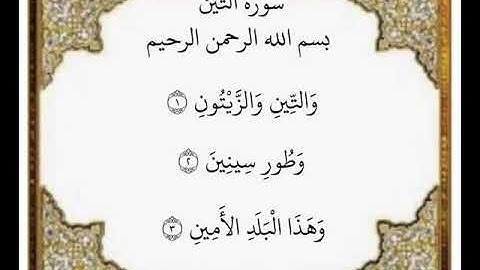 سورة التين
بسم الله الرحمن الرحيم
وَالتِّينِ وَالزَّيْتُونِ ١
وَطُورِ سِينِينَ ٢
وَهَذَا الْبَلَدِ الأَمِينِ ٣